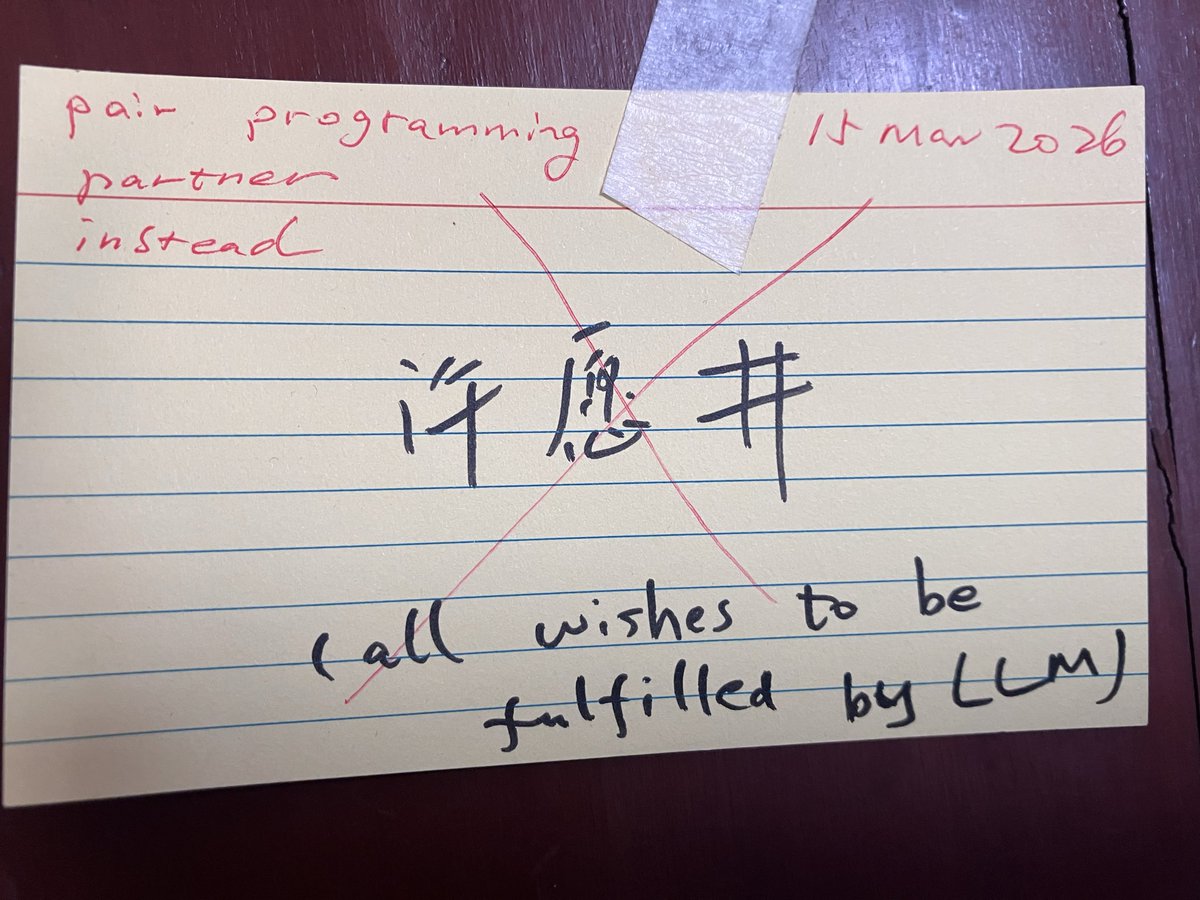 pair programming 15 Mar 2026
partner
instead
许愿井
(all wishes to be
fulfilled by LLM)